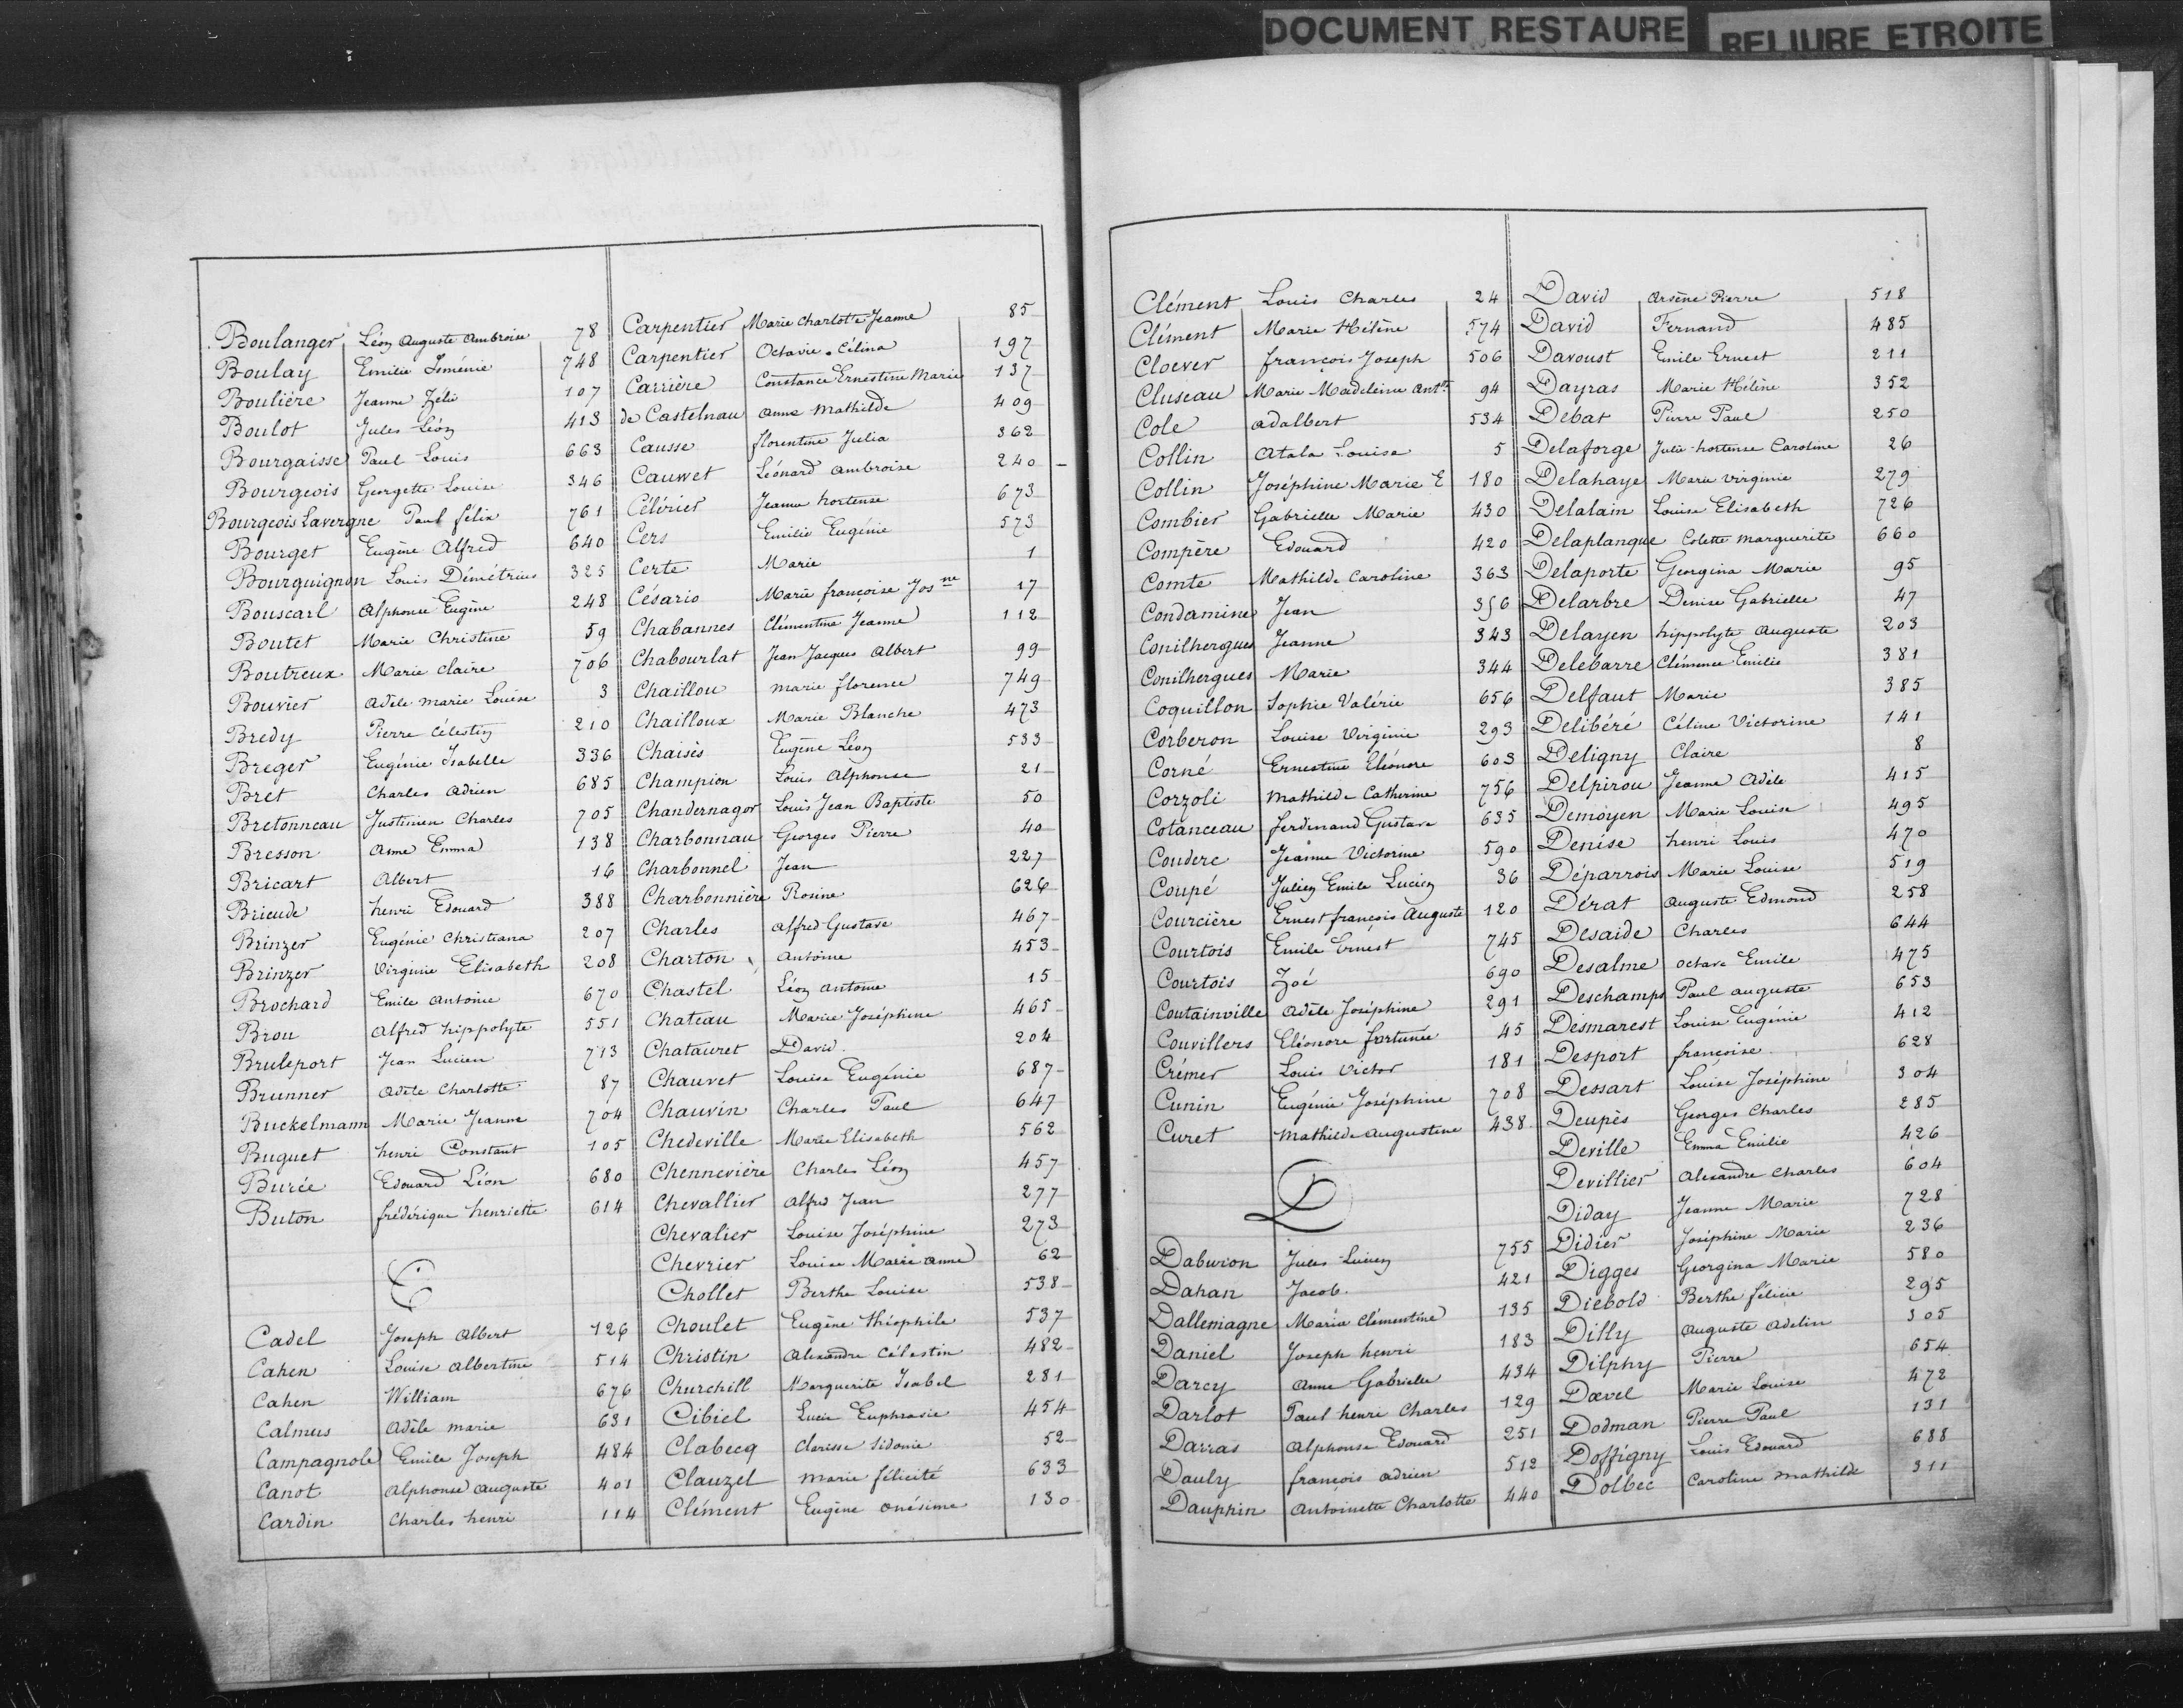 DOCUMENT RESTAURE
RELIURE ETROITE
Boulanger Léon Auguste Ambroise 78
Boulay Emilie Isménie 748
Boulière Jeanne Zélie 107
Boulot Jules Léon 413
Bourgaisse Paul Louis 663
Bourgeois Georgette Louise 346
Bourgeois Lavergne Paul félix 761
Bourget Eugène Alfred 640
Bourguignon Louis Démétrius 325
Bouscarl Alphonse Eugène 248
Boutet Marie Christine 59
Boutreux Marie Claire 706
Bouvier Adèle marie Louise 3
Bredy Pierre Célestin 210
Breger Eugénie Isabelle 336
Bret Charles Adrien 685
Bretonneau Justinien Charles 705
Bresson Anne Emma 138
Bricart Albert 16
Brieude henri Edouard 388
Brinzer Eugénie Christiana 207
Brinzer Virginie Elisabeth 208
Brochard Emile Antoine 670
Brou Alfred hippolyte 551
Bruleport Jean Lucien 713
Brunner Adèle Charlotte 87
Buckelmann Marie Jeanne 704
Buguet henri Constant 105
Burée Edouard Léon 680
Buton frédérique henriette 614
C
Cadel Joseph Albert 126
Cahen Louise Albertine 514
Cahen William 676
Calmus Adèle marie 631
Campagnole Emile Joseph 484
Canot Alphonse Auguste 401
Cardin Charles henri 114
Carpentier Marie Charlotte Jeanne 85
Carpentier Octavie Célina 197
Carrière Constance Ernestine Marie 137
de Castelnau Anne Mathilde 409
Causse florentine Julia 362
Cauwet Léonard Ambroise 240
Célérier Jeanne hortense 673
Cers Emilie Eugénie 573
Certe Marie 1
Césario Marie françoise Jos ne 17
Chabannes Clémentine Jeanne 112
Chabourlat Jean Jacques Albert 99
Chaillou marie florence 749
Chailloux Marie Blanche 473
Chaisès Eugène Léon 533
Champion Louis Alphonse 21
Chandernagor Louis Jean Baptiste 50
Charbonnau Georges Pierre 40
Charbonnel Jean 227
Charbonnière Rosine 626
Charles Alfred Gustave 467
Charton Antoine 453
Chastel Léon Antoine 15
Chateau Marie Joséphine 465
Chatauret David 204
Chauvet Louise Eugénie 687
Chauvin Charles Paul 647
Chedeville Marie Elisabeth 562
Chennevière Charles Léon 457
Chevallier Alfred Jean 277
Chevalier Louise Joséphine 273
Chevrier Louise Marie Anne 62
Chollet Berthe Louise 538
Choulet Eugène théophile 537
Christin Alexandre Célestin 482
Churchill Marguerite Isabel 281
Cibiel Lucie Euphrasie 454
Clabecq Clarisse Sidonie 52
Clauzel marie félicité 633
Clément Eugène onésime 130
Clément Louis Charles 24
Clément Marie Hélène 574
Cloever françois Joseph 506
Cluseau Marie Madeleine Antte 94
Cole Adalbert 534
Collin Atala Louise 5
Collin Joséphine Marie E 180
Combier Gabrielle Marie 430
Compère Edouard 420
Comte Mathilde Caroline 363
Condamine Jean 356
Conilhergues Jeanne 343
Conilhergues Marie 344
Coquillon Sophie Valérie 656
Corberon Louise Virginie 293
Corné Ernestine Eléonore 603
Corzoli Mathilde Catherine 756
Cotanceau ferdinand Gustave 635
Couderc Jeanne Victorine 590
Coupé Julien Emile Lucien 36
Courcière Ernest françois Auguste 120
Courtois Emile Ernest 745
Courtois Zoé 690
Coutainville Adèle Joséphine 291
Couvillers Eléonore fortunée 45
Crémer Louis Victor 181
Cunin Eugénie Joséphine 708
Curet Mathilde Augustine 438
D
Daburon Jules Lucien 755
Dahan Jacob 421
Dallemagne Maria Clémentine 135
Daniel Joseph henri 183
Darcy Anne Gabrielle 434
Darlot Paul henri Charles 129
Darras Alphonse Edouard 251
Dauly françois Adrien 512
Dauphin Antoinette Charlotte 440
David Arsène Pierre 518
David Fernand 485
Davoust Emile Ernest 211
Dayras Marie Hélène 352
Debat Pierre Paul 250
Delaforge Julie hortense Caroline 26
Delahaye Marie Virginie 279
Delalain Louise Elisabeth 726
Delaplanque Colette Marguerite 660
Delaporte Georgina Marie 95
Delarbre Denise Gabrielle 47
Delayen hippolyte Auguste 203
Delebarre Clémence Emilie 381
Delfaut Marie 385
Delibéré Céline Victorine 141
Deligny Claire 8
Delpirou Jeanne Adèle 415
Demoyen Marie Louise 495
Denise henri Louis 470
Déparrois Marie Louise 519
Dérat Auguste Edmond 258
Desaide Charles 644
Desalme octave Emile 475
Deschamps Paul Auguste 653
Desmarest Louise Eugénie 412
Desport françoise 628
Dessart Louise Joséphine 304
Deupès Georges Charles 285
Deville Emma Emilie 426
Devillier Alexandre Charles 604
Diday Jeanne Marie 728
Didier Joséphine Marie 236
Digges Georgina Marie 580
Diebold Berthe félicie 295
Dilly Auguste Adelin 305
Dilphy Pierre 654
Dœvel Marie Louise 472
Dodman Pierre Paul 131
Doffigny Louis Edouard 688
Dolbec Caroline Mathilde 311